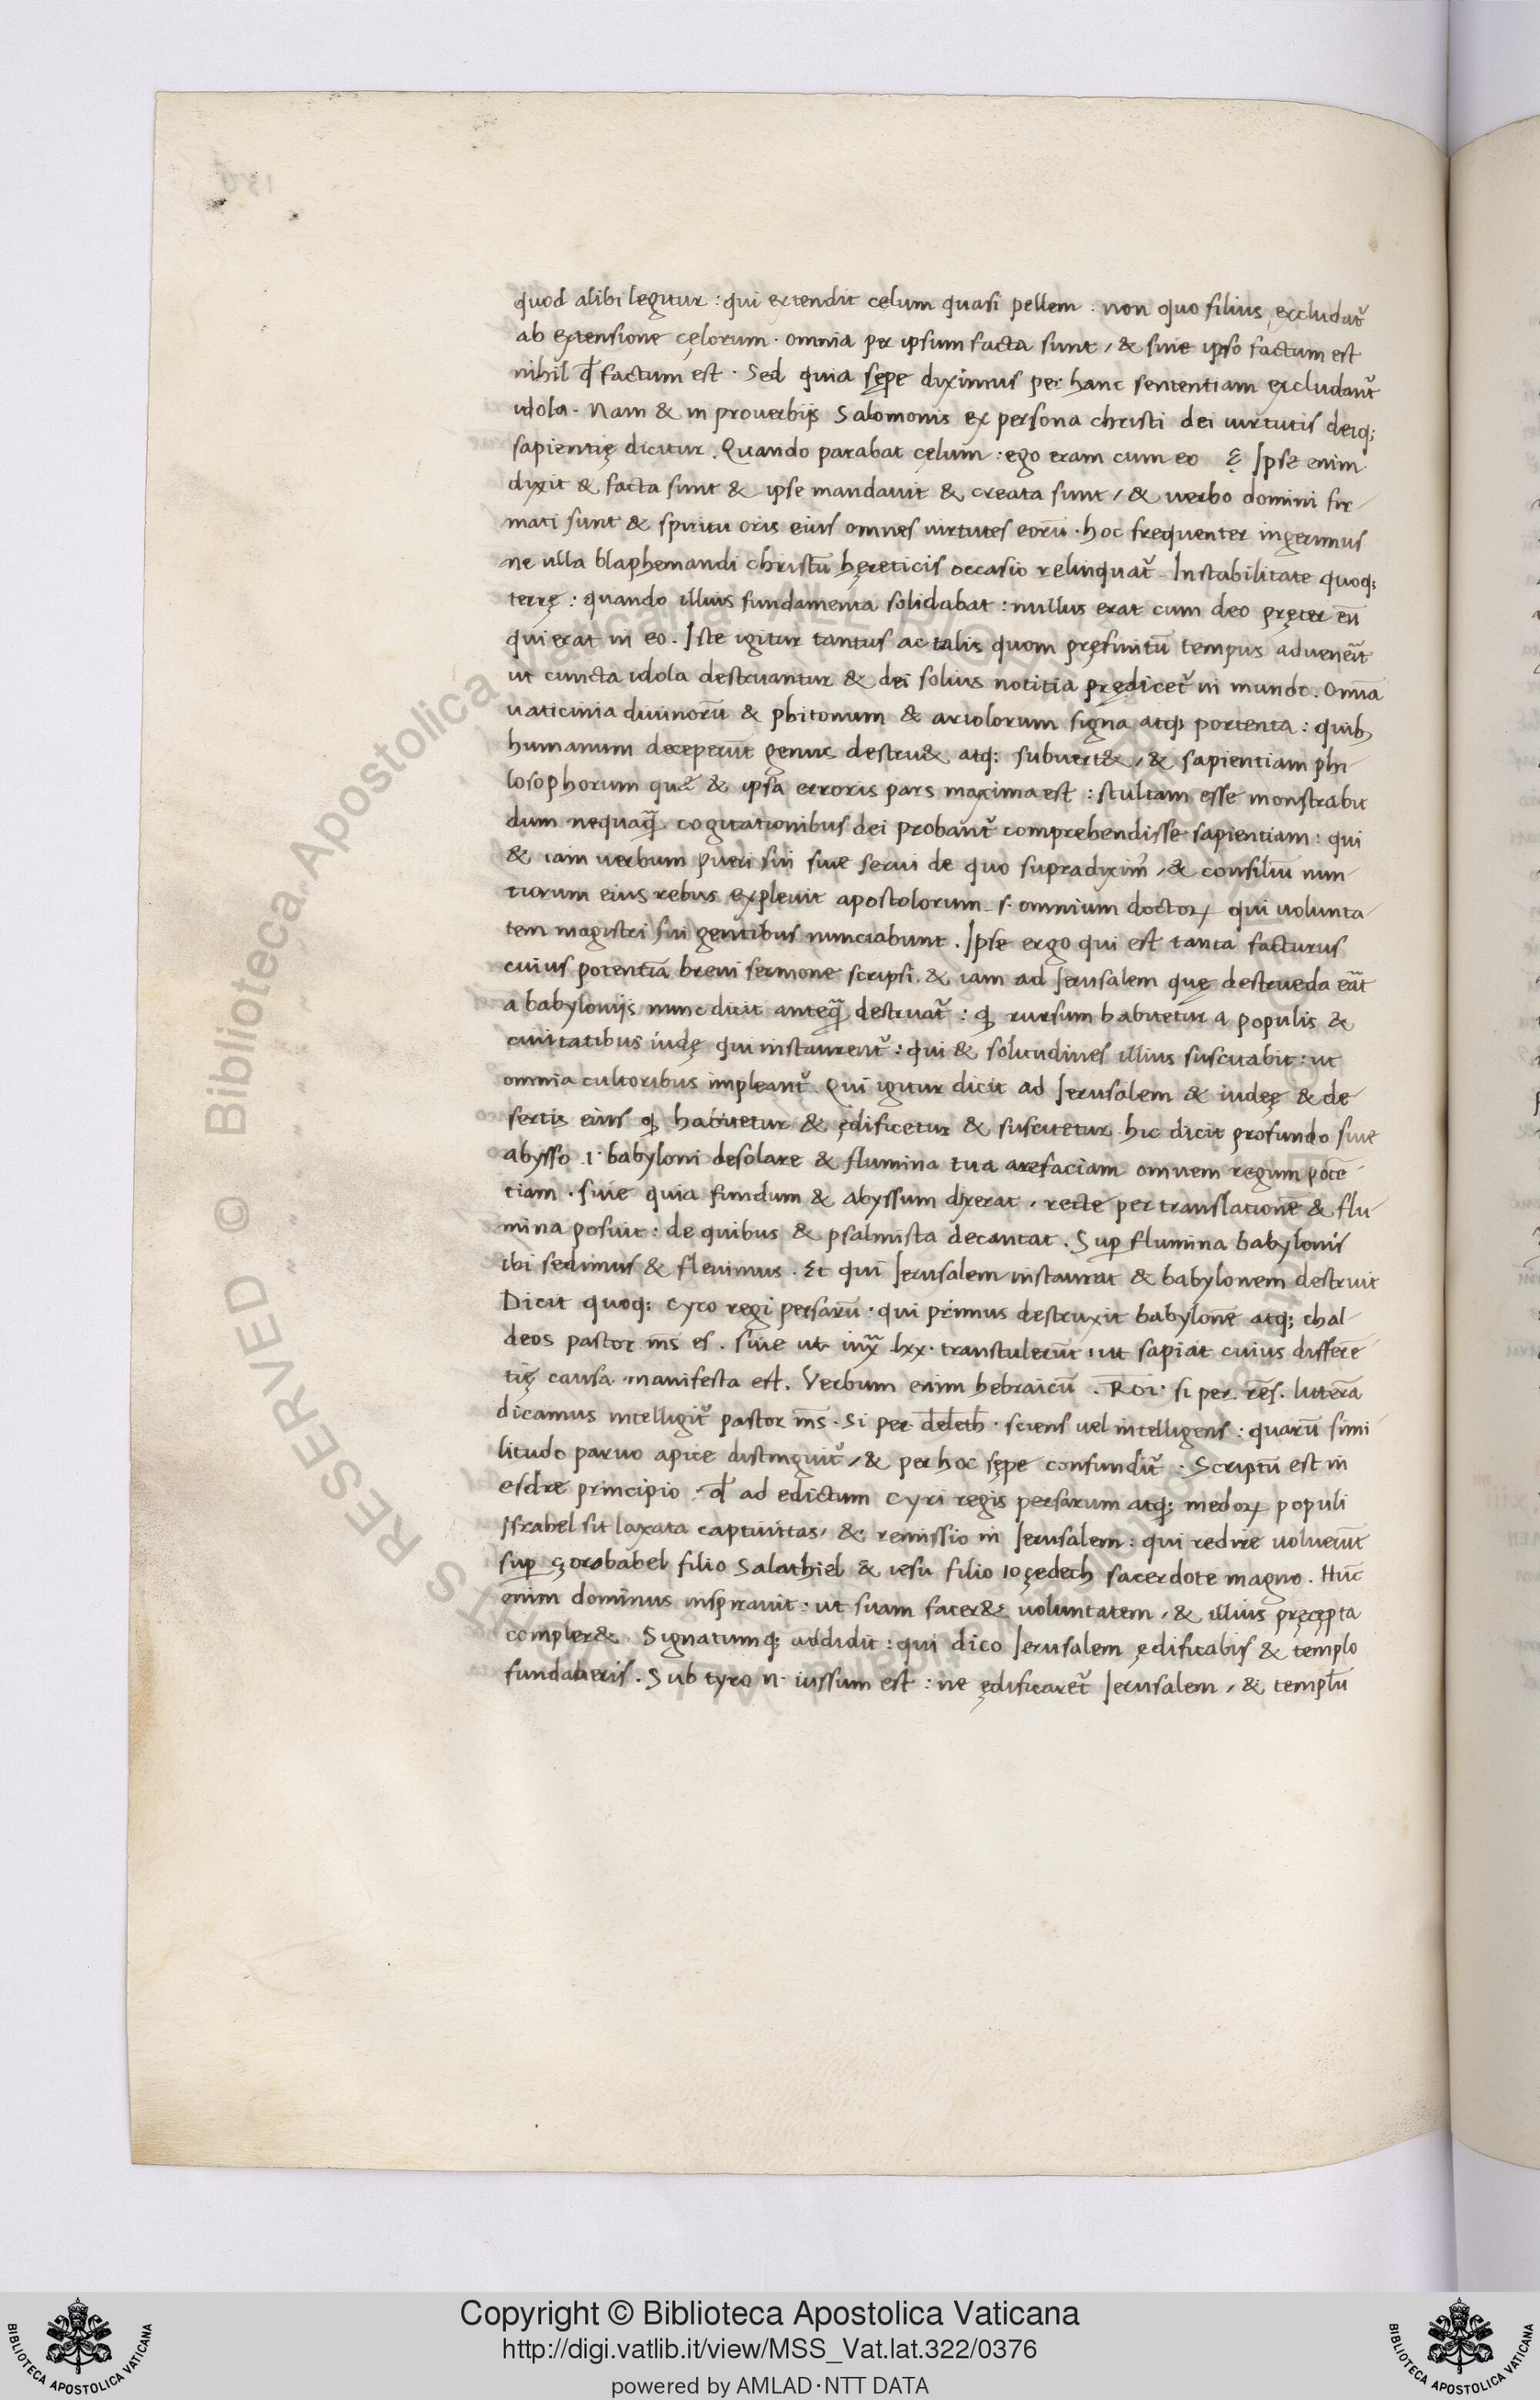 quod alibi legitur : qui extendit cęlum quasi pellem : non quo filius excludat᷑
ab extensione cęlorum · omnia per ipsum facta sunt / & sine ipso factum est
nihil qđ factum est · Sed quia sępe diximus per hanc sententiam excludant᷑
idola · Nam & in prouerbijs Salomonis ex persona christi dei uirtutis deiq;
sapientię dicitur . Quando parabat cęlum : ego eram cum eo Ę Ipse enim
dixit & facta sunt & ipse mandauit & creata sunt / & uerbo domini fir-
mati sunt & spiritu oris eius omnes uirtutes eorū · hoc frequenter ingerimus
ne ulla blaphemandi christū hęreticis occasio relinquat᷑ . In stabilitate quoq;
terrę : quando illius fundamenta solidabat : nullus erat cum deo pręter eū
qui erat in eo . Iste igitur tantus ac talis quom pręfinitū tempus aduenẽit
ut cuncta idola destruantur & dei solius notitia prędicet᷑ in mundo . Omīa
uaticinia diuinorū & phitonum & ariolorum signa atq; portenta : quib;
humanum deceperūt genus destru& atq; subuert& / & sapientiam phi
losophorum quę & ipsa erroris pars maxima est : stultam esse monstrabit
dum nequaq̃ cogitationibus dei probant᷑ comprehendisse sapientiam : qui
& iam uerbum pueri sui siue serui de quo supra dixim᷒ / & consiliū nun
tiorum eius rebus expleuit apostolorum . s. omnium doctoꝝ qui uolunta-
tem magistri sui gentibus nunciabunt . Ipse ergo qui est tanta facturus
cuius potentiā breui sermone scripsi . & iam ad Ierusalem quę destrueda eãt
a babylonijs nunc dicit anteq̃ destruat᷑ : ꝙ rursum habitetur a populis &
ciuitatibus iudę qui instaurent᷑ : qui & solitudines illius suscitabit : ut
omnia cultoribus impleant᷑ . Qui igitur dicit ad Ierusalem & iudeę & de
sertis eius ꝙ habitetur & ędificetur & suscitetur . hic dicit profundo siue
abysso .i. babyloni desolare & flumina tua arefaciam omnem regum potē-
tiam . siue quia fundum & abyssum dixerat , recte per translationē & flu-
mina posuit : de quibus & psalmista decantat . Sup̱ flumina babylonis
ibi sedimus & fleuimus . Et qui Ierusalem instaurat & babylonem destruit
Dicit quoq; Cyro regi persarū · qui primus destruxit babylonē atq; chal-
deos pastor m̄s es . siue ut iux̃ .lxx. transtulerūt : ut sapiat cuius differē-
tię causa manifesta est . Verbum enim hebraicū . Roi . si per . rēs . litterā
dicamus intelligit᷑ pastor m̄s . Si per deleth · sciens uel intelligens : quarū simi
litudo paruo apice distinguit᷑ / & per hoc sępe confundit᷑ . Scriptū est in
esdre principio : qđ ad edictum Cyri regis persarum atq; medoꝝ populi
Israhel sit laxata captiuitas / & remissio in Ierusalem : qui redire uoluerūt
sup̱ çorobabel filio Salathiel & iesu filio Ioçedech sacerdote magno . Hūc
enim dominus inspirauit : ut suam facer& uoluntatem / & illius pręcępta
compler& . Signatumq; addidit : qui dico Ierusalem ędificabis & templo
fundaberis . Sub tyro n. iussum est : ne ędificaret᷑ Ierusalem / & templū
Copyright © Biblioteca Apostolica Vaticana
http://digi.vatlib.it/view/MSS_Vat.lat.322/0376
powered by AMLAD·NTT DATA